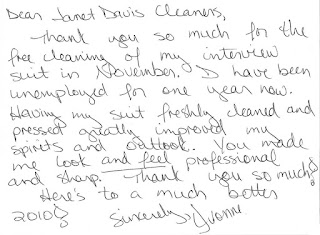 Dear Janet Davis Cleaners,
Thank you so much for the
free cleaning of my interview
suit in November. I have been
unemployed for one year now.
Having my suit freshly cleaned and
pressed greatly improved my
spirits and outlook. You made
me look and feel professional
and sharp. Thank you so much!
Here's to a much better
2010! Sincerely, Yvonne